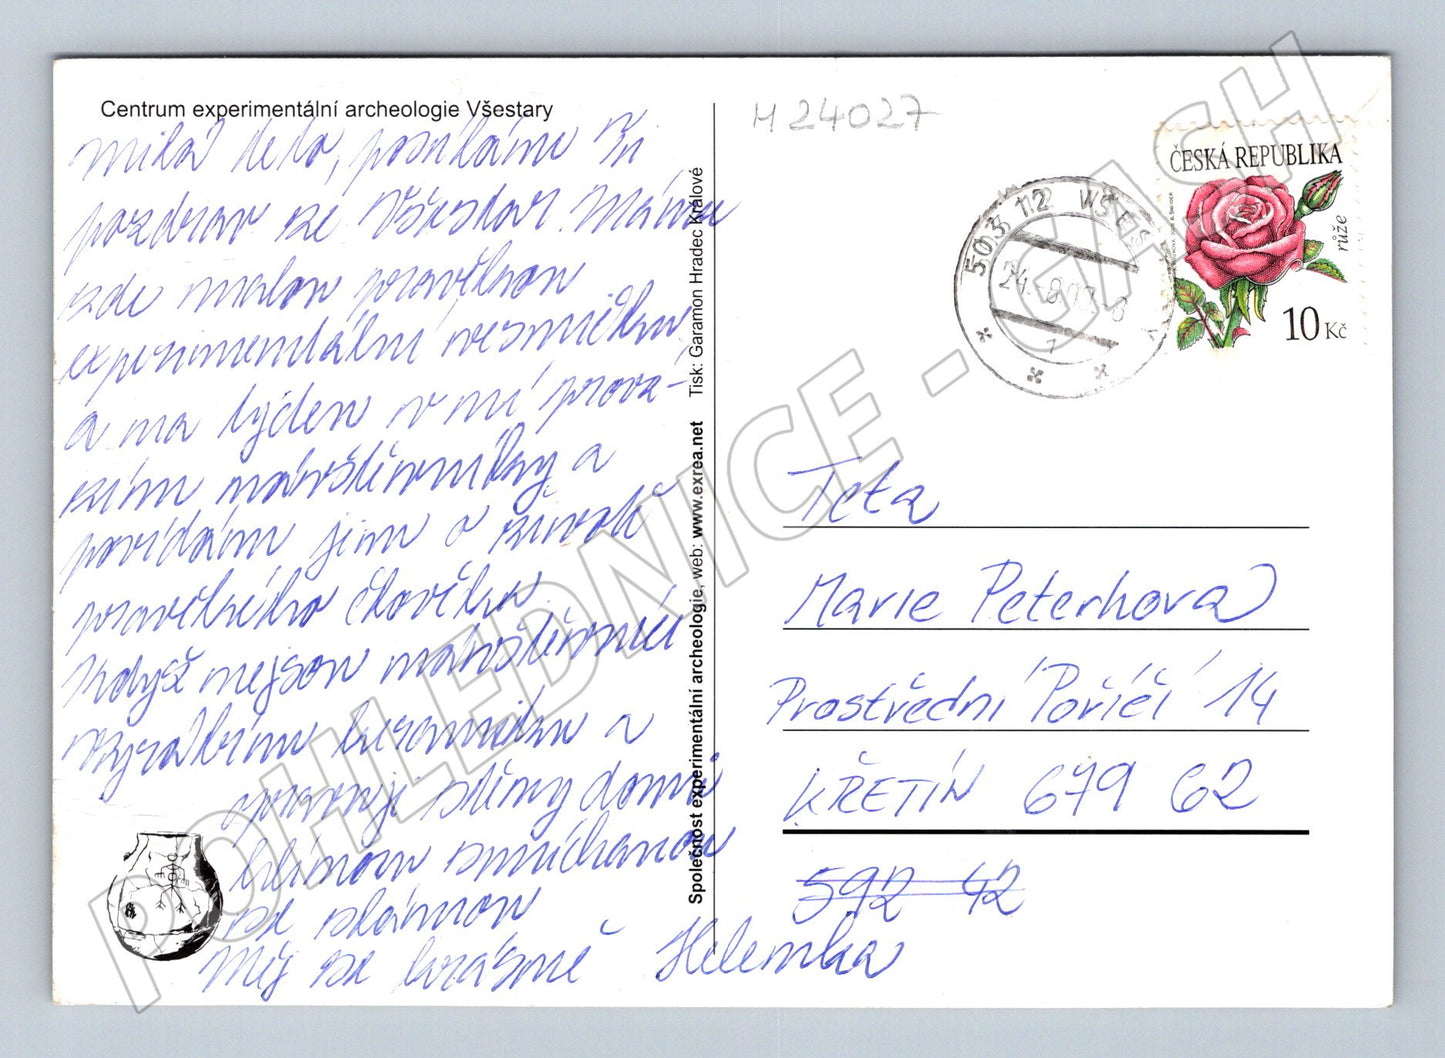 Centrum experimentální archeologie Všestary
milá teto, posílám Ti
pozdrav ze Všestar. Máme
zde malou pravěkou
experimentální vesničku
a na týden v ní prová-
zím návštěvníky a
povídám jim o životě
pravěkého člověka.
Když nejsou návštěvníci
vyrábím keramiku a
opravuji stěny domů
hlínou smíchanou
se slámou
Měj se krásně Helenka
Společnost experimentální archeologie, web: www.exrea.net Tisk: Garamon Hradec Králové
M 24027
503 12 VŠES
24.-8.07-8
1
ČESKÁ REPUBLIKA
růže
10 Kč
Teta
Marie Peterhova
Prostřední Poříčí 14
KŘETÍN 679 62
592 42
POHLEDNICE - GASH